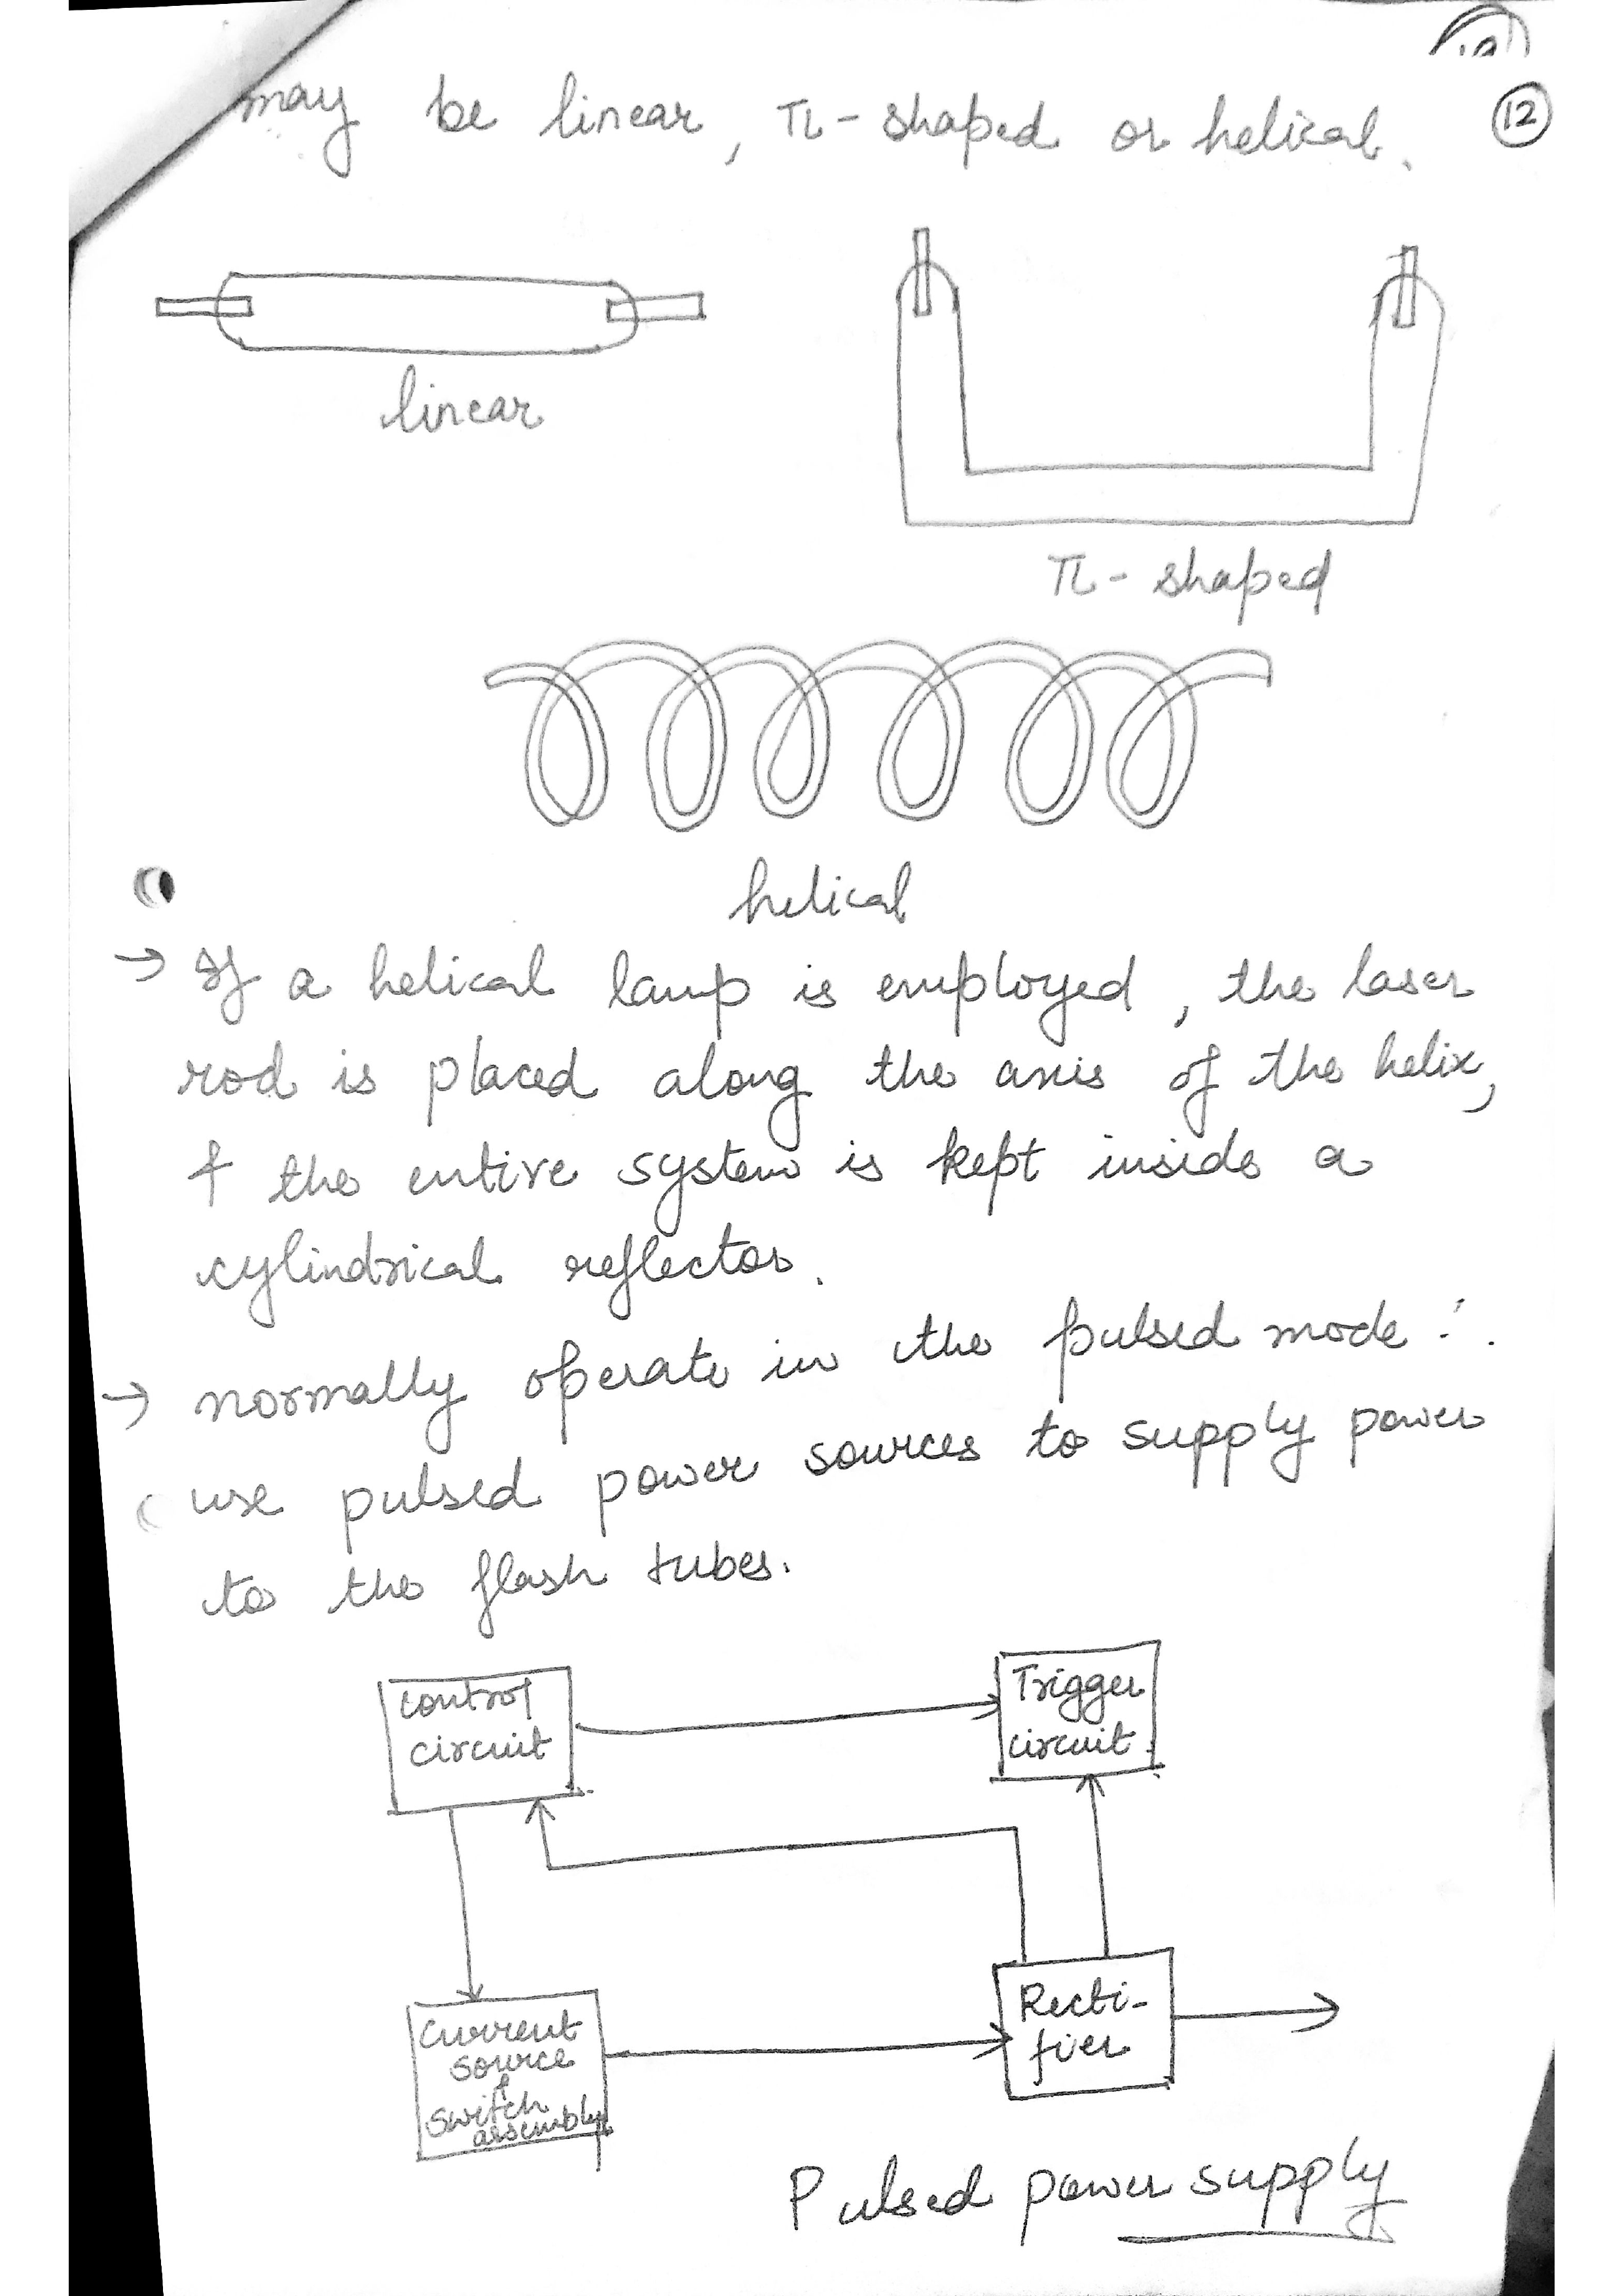 may be linear, π-shaped or helical.
12
linear
π-shaped
helical
→ If a helical lamp is employed, the laser
rod is placed along the axis of the helix,
& the entire system is kept inside a
cylindrical reflector.
→ normally operate in the pulsed mode ∴
use pulsed power sources to supply power
to the flash tubes.
control
circuit
Trigger
circuit
Current
source
&
switch
assembly
Recti-
fier
Pulsed power supply